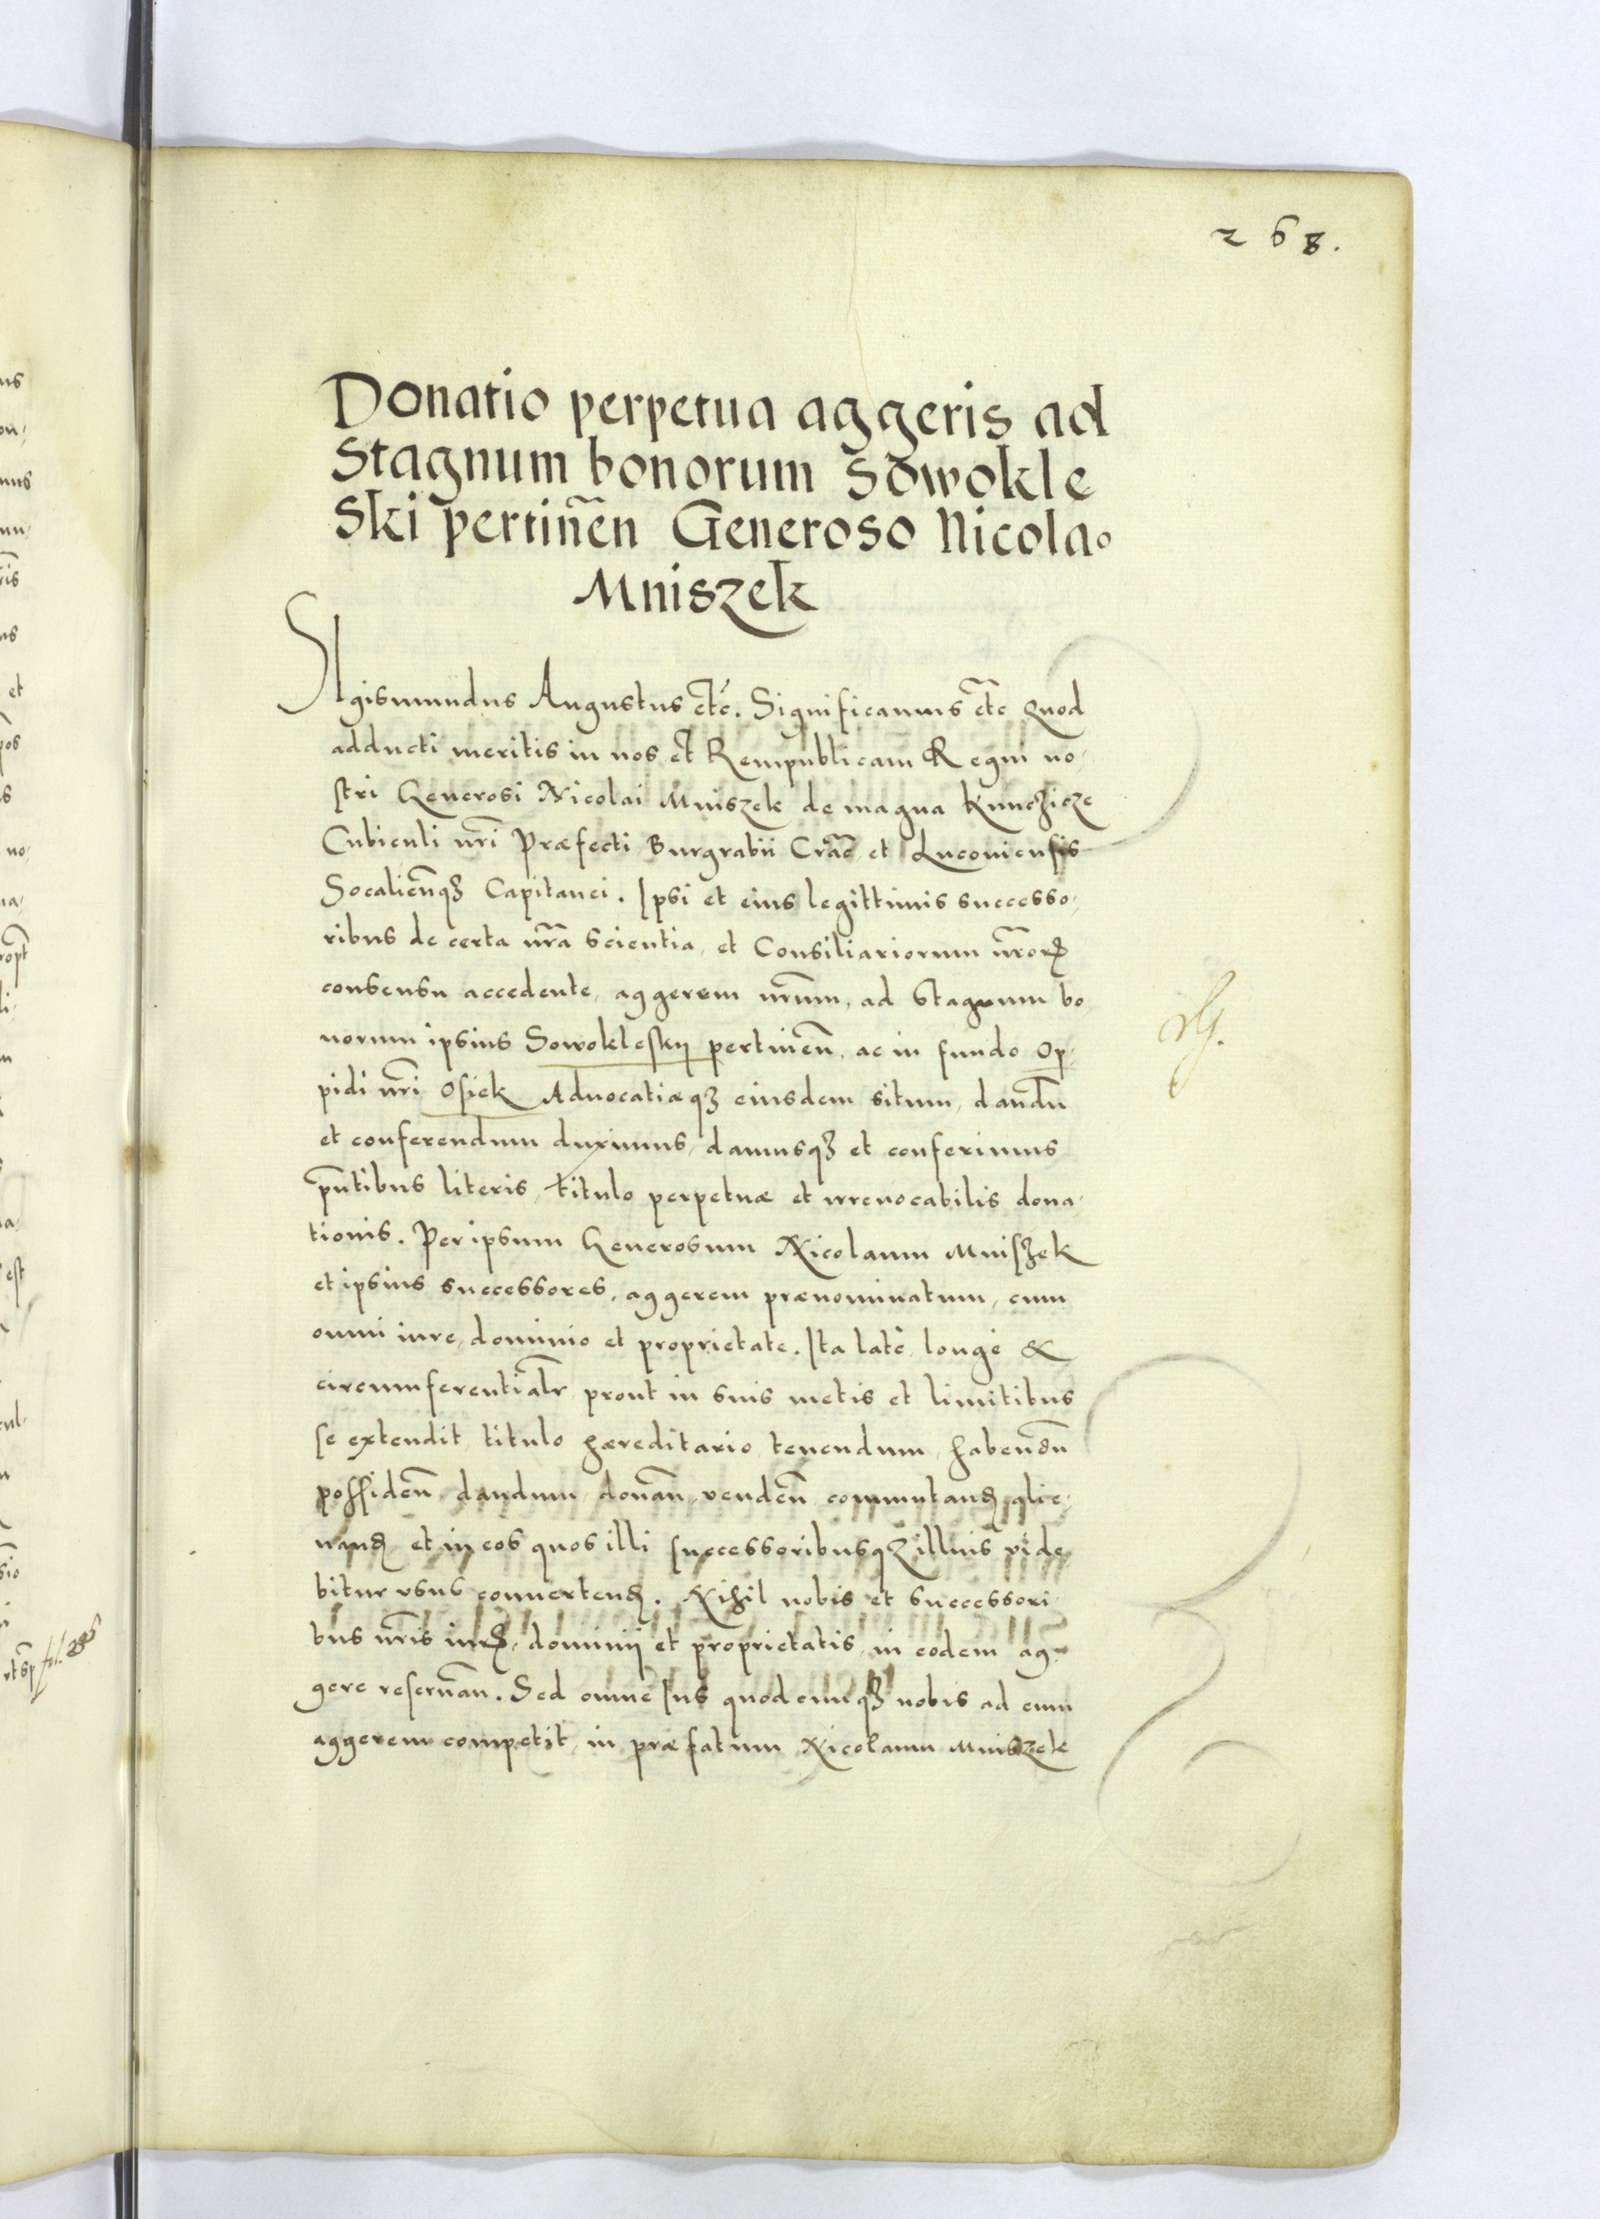 268.
Donatio perpetua aggeris ad
Stagnum bonorum Sowokle
Ski pertineñ Generoso Nicolao
Mniszek
Sigismundus Augustus etc̃. Significamus etc̃ Quod
adducti meritis in nos et Rempublicam Regni no,
stri Generosi Nicolai Mniszek de magna Kunczicze
Cubiculi nr̃i Præfecti Burgrabii Crac̃ et Luconiensis
Socalieñqꝫ Capitanei. Ipsi et eius legittimis successo,
ribus de certa nr̃a scientia, et Consiliariorum nr̃orꝝ
consensu accedente, aggerem nr̃um, ad Stagnum bo
norum ipsius Sowokleskij pertineñ, ac in fundo Op,
pidi nr̃i Osiek Aduocatiæqꝫ eiusdem situm, dandũ
et conferendum duximus, damusqꝫ et conferimus
pñtibus literis, titulo perpetuæ et irreuocabilis dona,
tionis. Per ipsum Generosum Nicolaum Mniszek
et ipsius successores, aggerem prænominatum, cum
omni iure, dominio et proprietate. Ita latè, longè &
circumferentialr̃ prout in suis metis et limitibus
se extendit, titulo hæreditario tenendum, habendũ
possideñ, dandum, donañ, vendeñ commutanꝺ, alie,
nanꝺ et in eos quos illi successoribusqꝫ illius vide,
bitur vsus conuertenꝺ. Nihil nobis et successori,
bus nr̃is iuris, dominij et proprietatis, in eodem ag,
gere reseruañ. Sed omne Ius quodcumqꝫ nobis ad eum
aggerem competit, in præfatum Nicolaum Mniszek